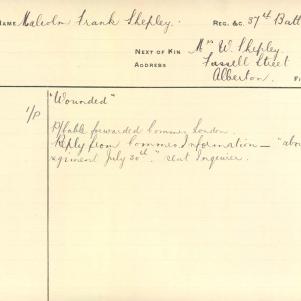 NAME Malcolm Frank Shepley. REG. &C. 57th Batt
NEXT OF KIN Mrs W. Shepley.
ADDRESS Fussell Street
Alberton.
"Wounded"
forwarded Commr London.
Reply from Commr Information — "abo
regiment July 30th." sent Inquirer.